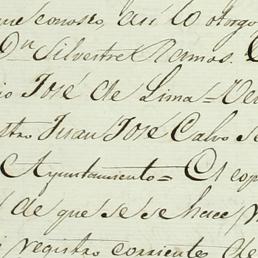 que conosco, así lo otorgo
Dn Silvestre Ramos.
José de Lima = 
Juan José Calvo
Ayuntamiento = El
de que sé se hace
registro corriente de